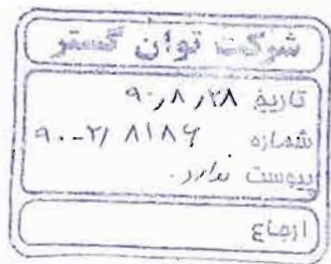 شرکت توان گستر
تاریخ ۹۰٫۸٫۲۸
شماره ۹۰-۲/۸۱۸۶
پیوست ندارد.
ارجاع